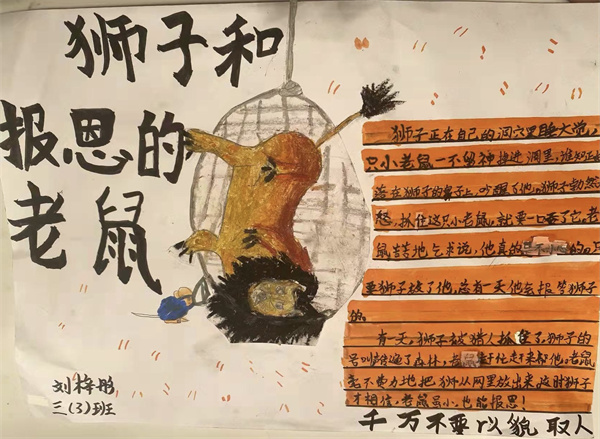 狮子和
报恩的
老鼠
狮子正在自己的洞穴里睡大觉,
只小老鼠一不留神撞进洞里,谁知正
落在狮子的鼻子上,吵醒了他,狮子勃然
怒,抓住这只小老鼠,就要一口吞了它,老
鼠苦苦地乞求说,他真的是不小心的,只
要狮子放了他,总有一天他会报答狮子
的。
有一天,狮子被猎人抓住了,狮子的
号叫声传遍了森林,老鼠赶忙走来帮他,老鼠
毫不费力地把狮从网里放出来,这时狮子
才相信,老鼠虽小,也能报恩!
千万不要以貌取人
刘梓彤
三(3)班